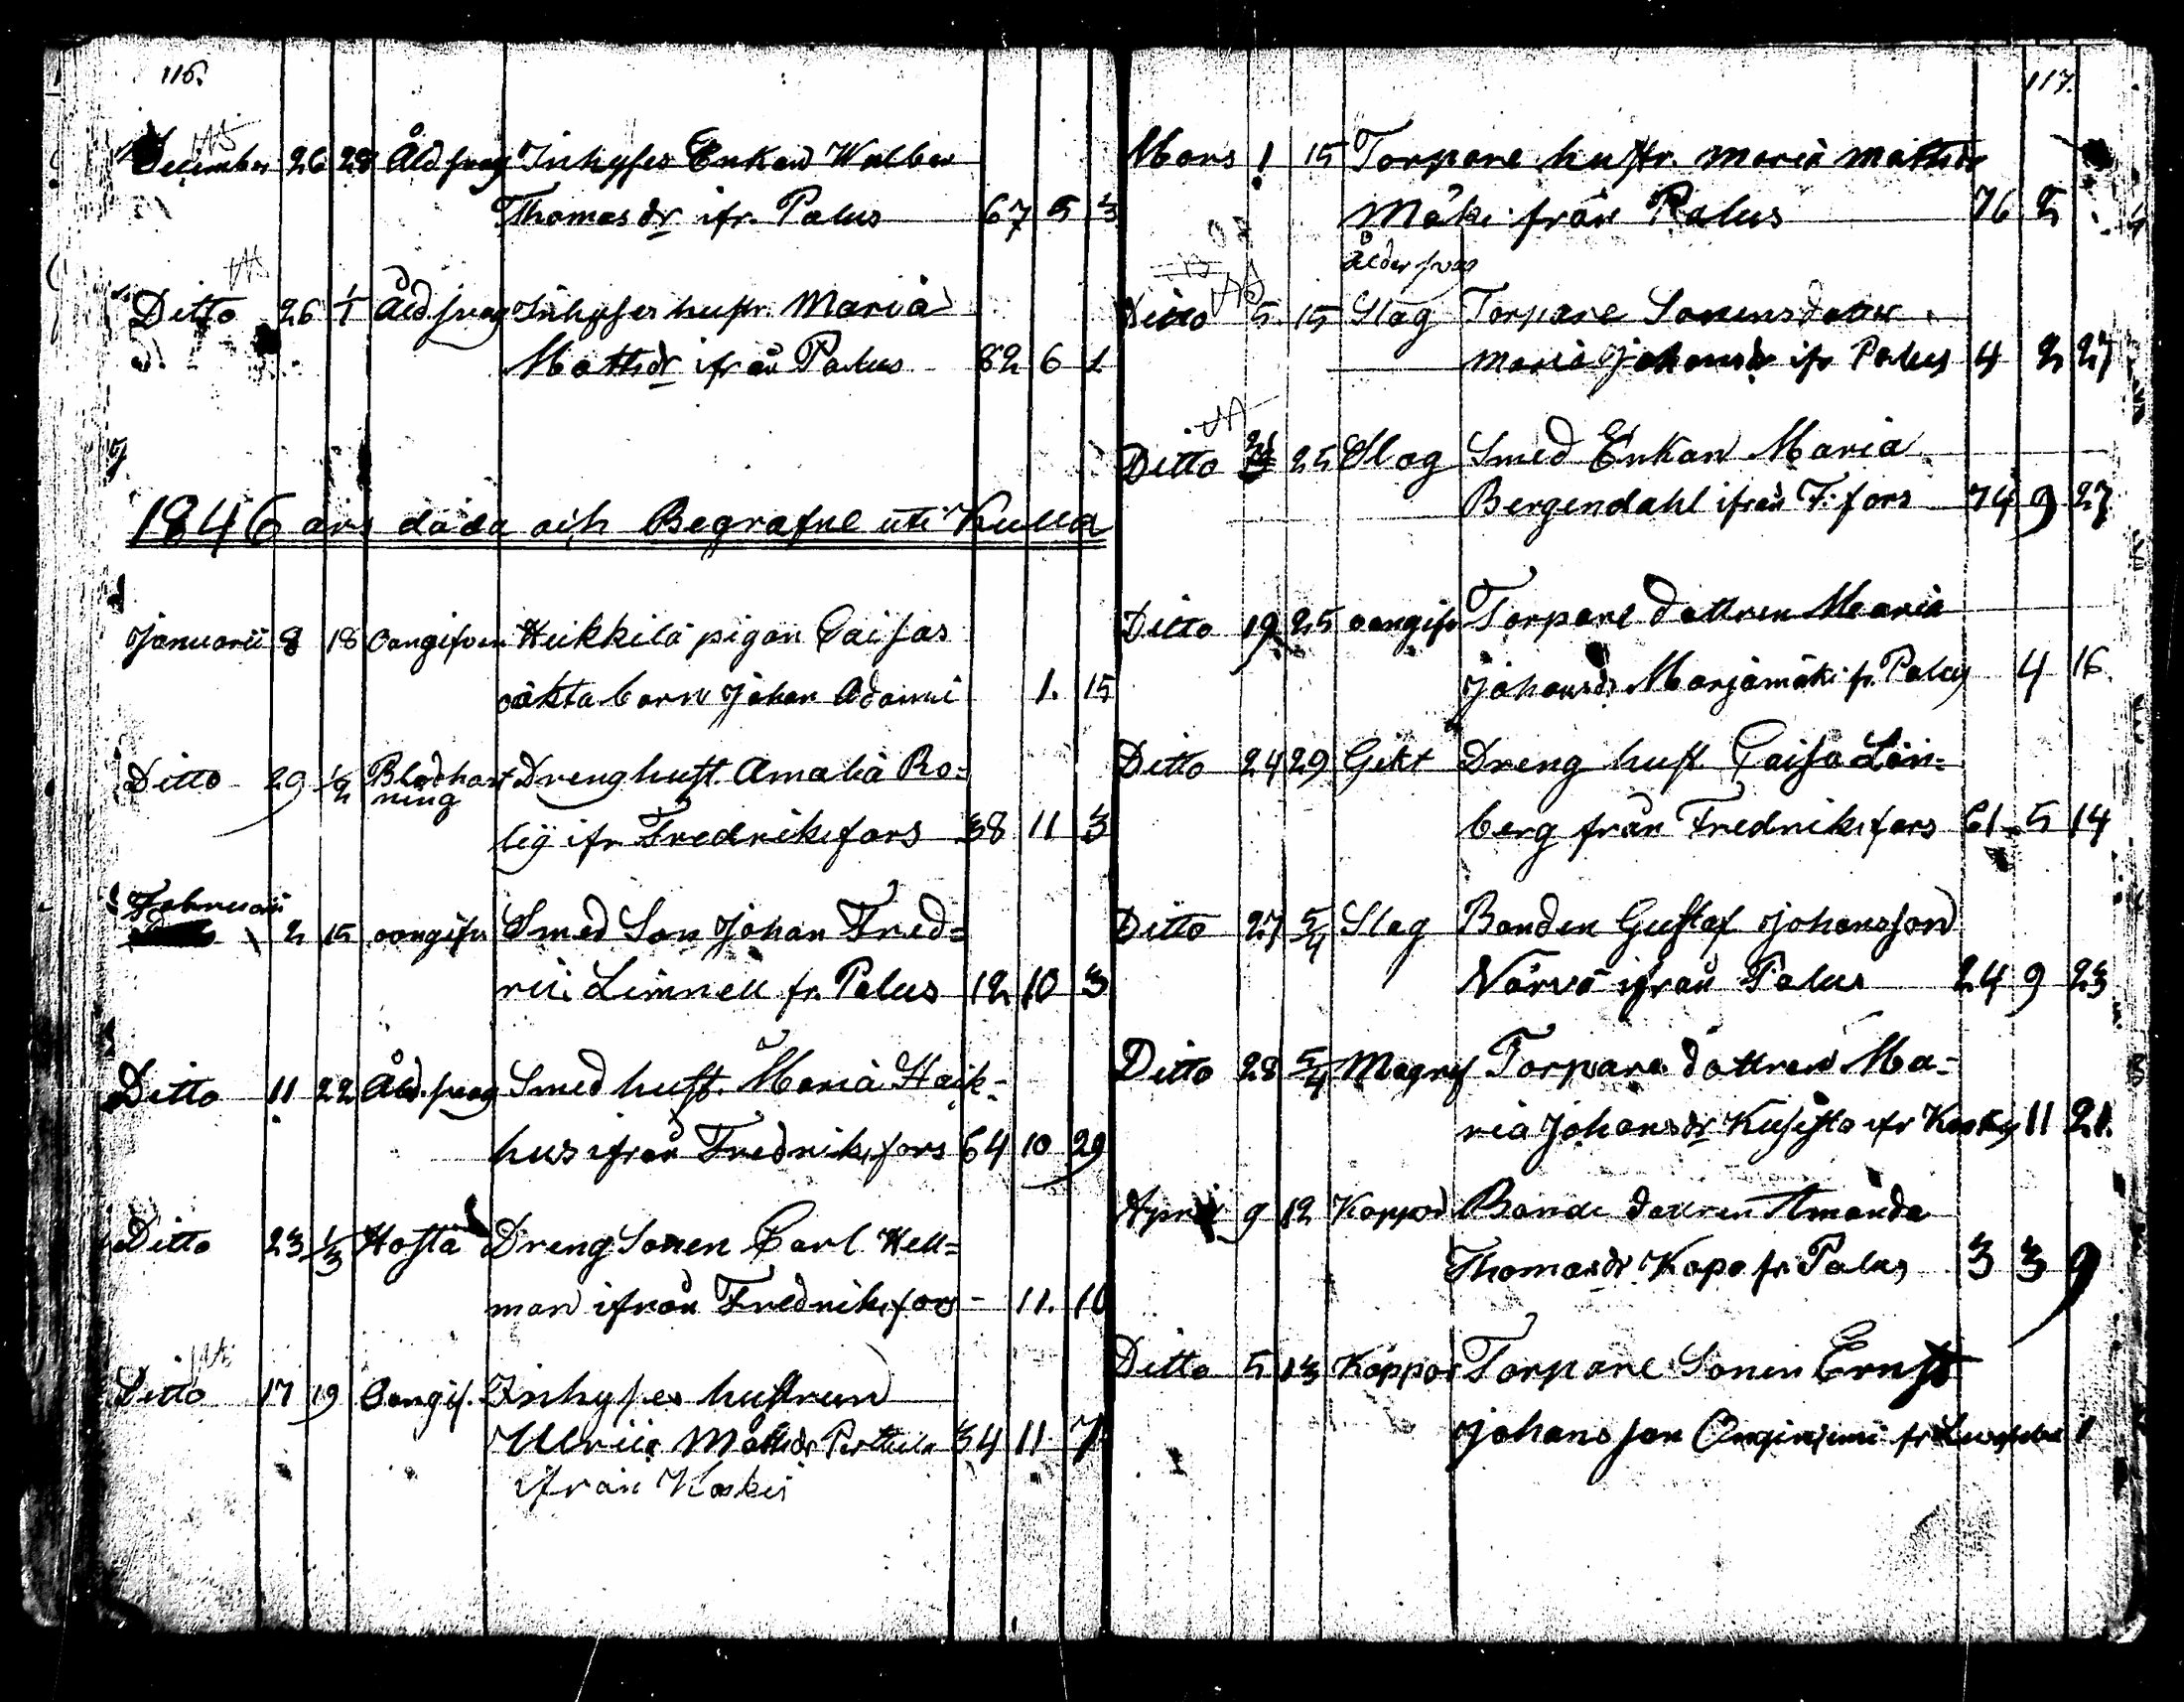 116.
December 26 28 Åld svag Inhyses Enkan Walbor
Thomasdr ifr. Palus 67 5 3
Ditto 26 1/1 Åld svag Inhyses hustr. Maria
Mattsdr ifrån Palus 82 6 1
1846 års döda och Begrafne uti Kulla
Januarii 8 18 Oangifven Heikkilä pigan Caisas
oäkta barn Johan Adami 1. 15
Ditto 29 1/2 Blodhost Dreng hust. Amalia Ro-
ning
lig ifr Fredriksfors 38 11 3
Februarii
2 15 oangifv Smed Son Johan Fred-
ric Limnell fr. Palus 12 10 3
Ditto 11 22 Åld. svag Smed hust. Maria Haik-
hus ifrån Fredriksfors 64 10 29
Ditto 23 1/3 Hosta Dreng Sonen Carl Hell-
man ifrån Fredriksfors - 11. 10
Ditto 17 19 Oangif. Inhyses hustrun
Ulrica Mattsdr Perttula 34 11 7
ifrån Koskis
117.
Mars 1 15 Torpare hustr. Maria Mattsdr
Mäki från Palus 76 2
Ålder svag
Ditto 5 15 Slag Torpare Sonens dotter
Maria Johansdr ifr Palus 4 2 27
Ditto 25 Slag Smed Enkan Maria
Bergendahl ifrån F:fors 74 9 27
Ditto 19 25 oangifv Torpare dottren Maria
Johansdr Marjamäki fr. Palus 4 16.
Ditto 24 29 Gikt Dreng hust Caisa Lön-
berg från Fredriksfors 61 5 14
Ditto 27 5/4 Slag Bonden Gustaf Johansson
Närvä ifrån Palus 24 9 23
Ditto 28 5/4 Magref Torpare dottren Ma-
ria Johansdr Kusisto ifr Koskis 11 21.
April 9 12 Koppor Bonde dottren Amanda
Thomasdr Kopo fr. Palus 3 3 9
Ditto 5 13 Koppor Torpare Sonen Ernst
Johansson fr 1